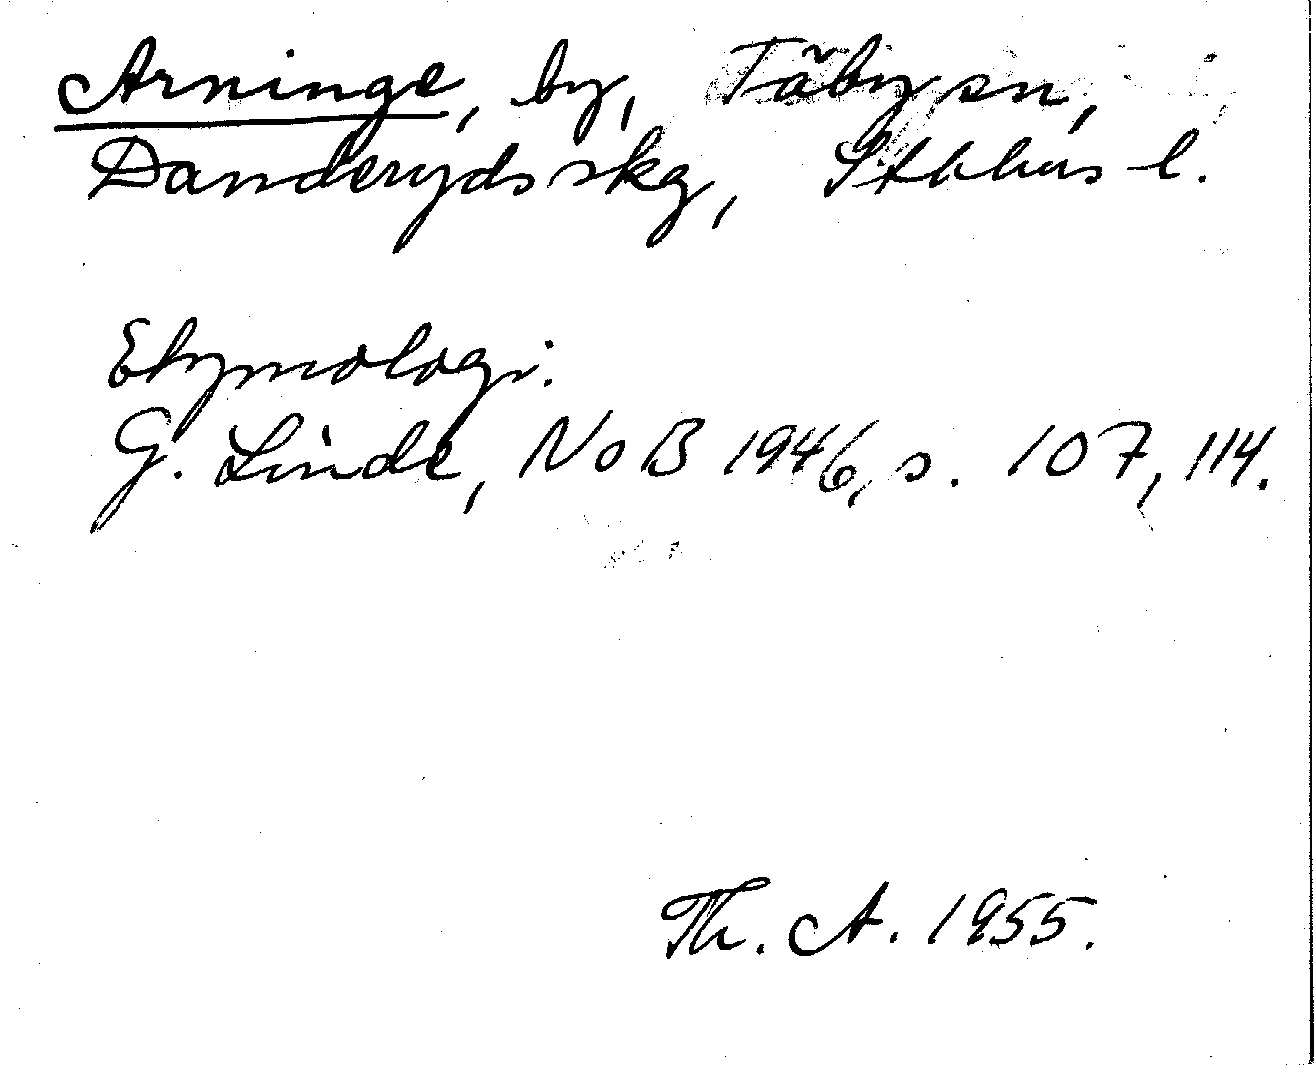 Arninge, by, Täby sn,
Danderyds skg, Sthlms l.
Etymologi:
G. Linde, NoB 1946, s. 107, 114.
Th. A. 1955.